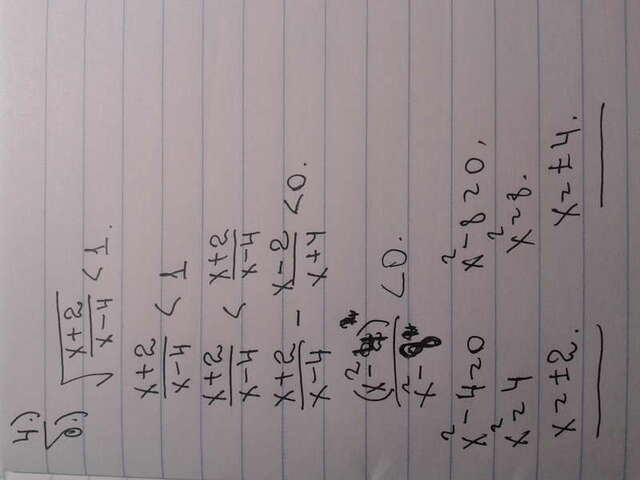 4.)
б.) √((x+2)/(x-4)) < 1.
(x+2)/(x-4) < 1
(x+2)/(x-4) < (x+2)/(x-4)
(x+2)/(x-4) - (x-2)/(x+4) < 0.
< 0.
x²-4=0 x²-8=0,
x²=4 x²=8.
x=±2. x=±4.